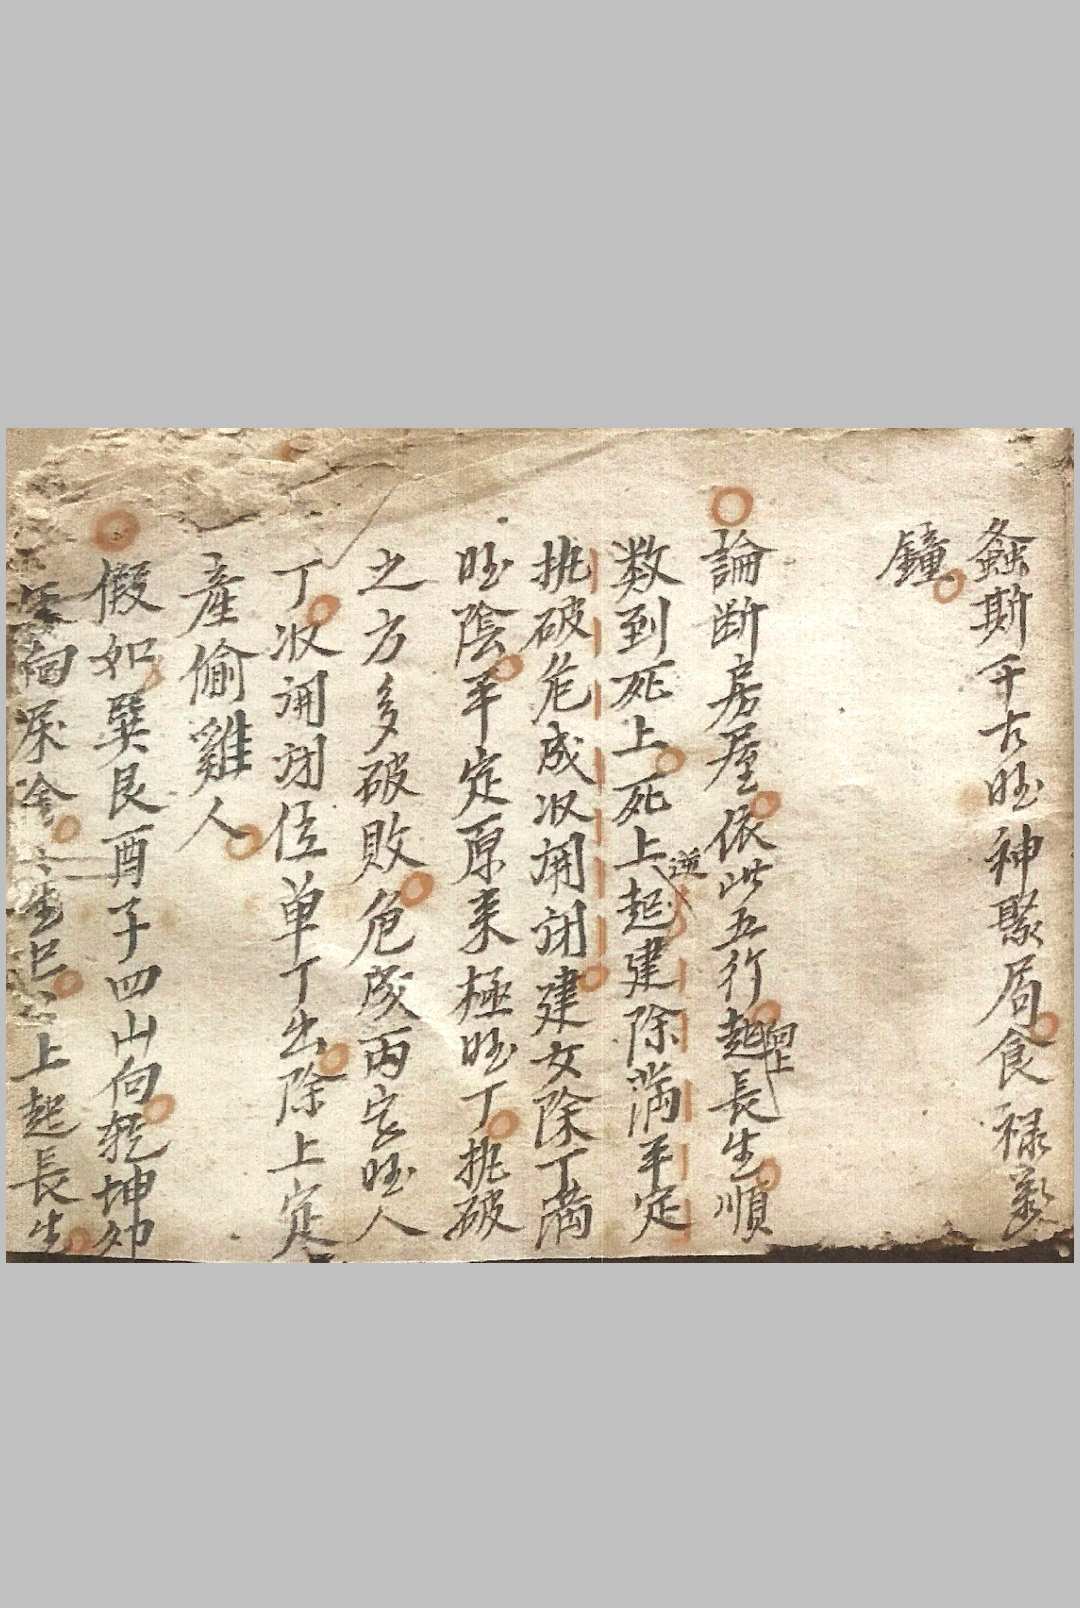 螽斯千古旺神聚局食禄萬
鐘
論断房屋依此五行起向上長生順
数到死上死上逆起建除滿平定
执破危成收開闭建女除丁滿
旺陰平定原来極旺丁执破
之方多破敗危成两宮旺人
丁收開闭位单丁出除上定
產偷雞人
假如巽艮酉子四山向乾坤卯
向属金生巳上起長生